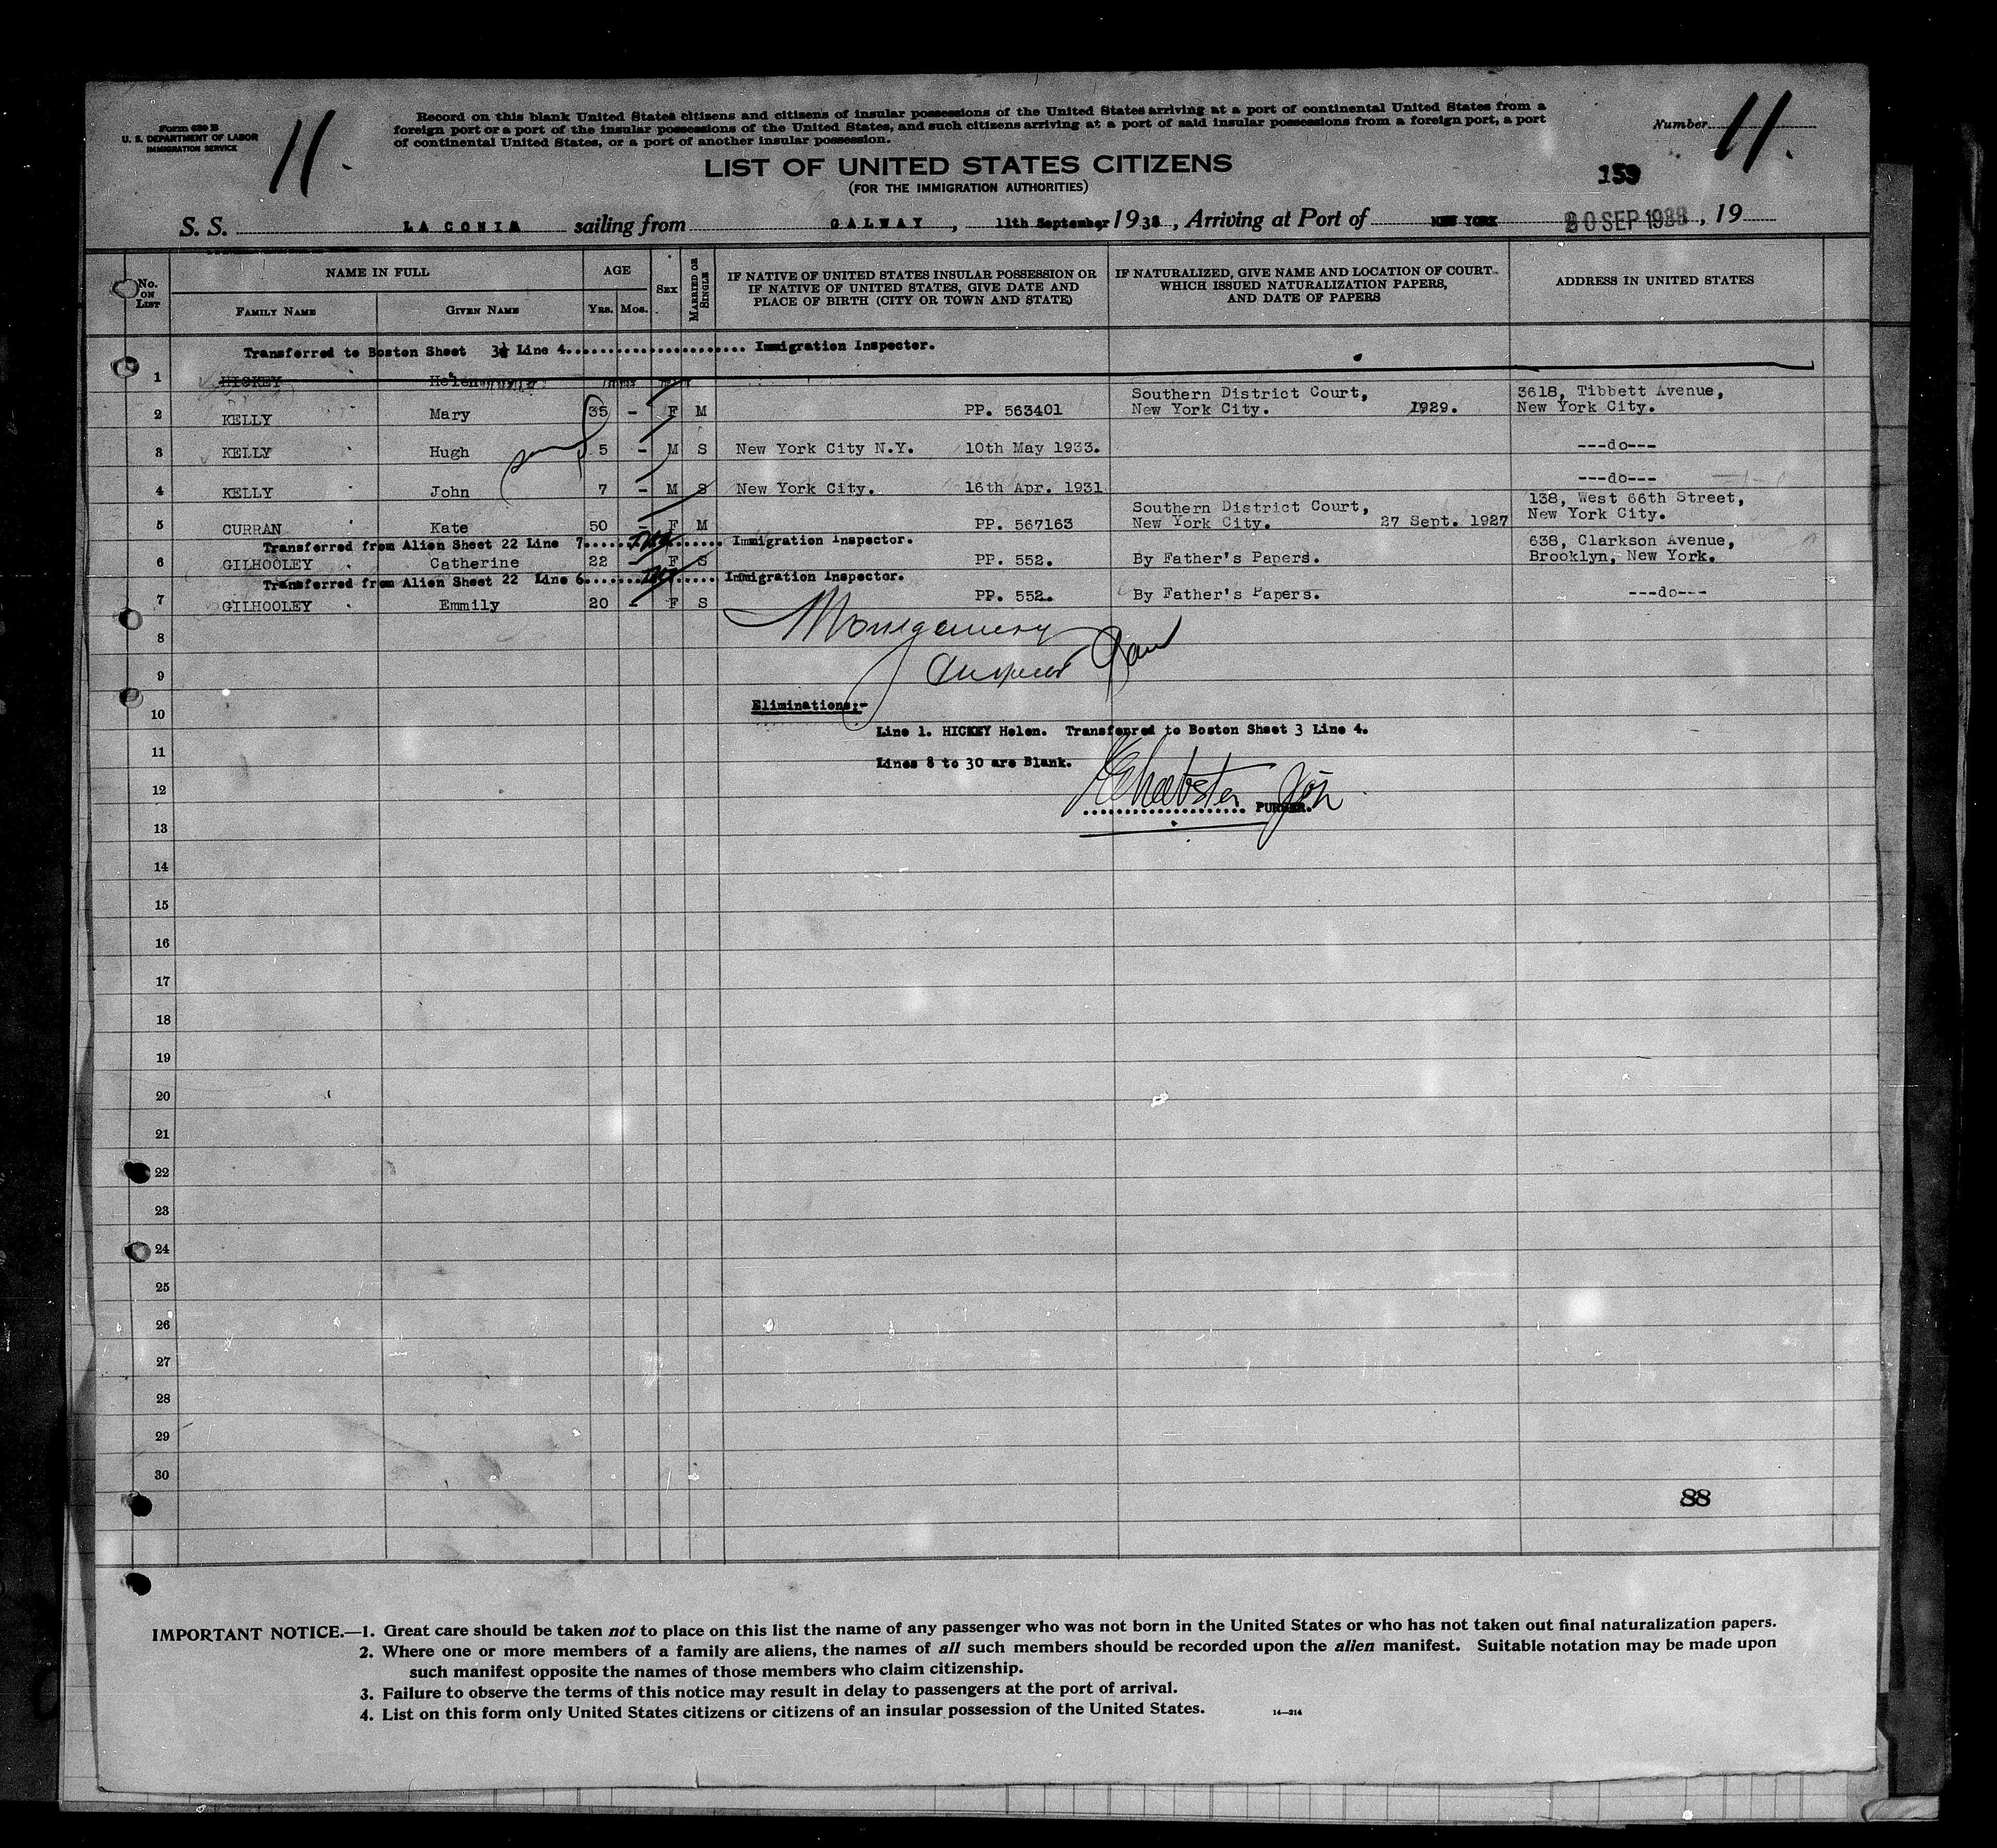 Form 630 B
U. S. DEPARTMENT OF LABOR
IMMIGRATION SERVICE
11.
Record on this blank United States citizens and citizens of insular possessions of the United States arriving at a port of continental United States from a
foreign port or a port of the insular possessions of the United States, and such citizens arriving at a port of said insular possessions from a foreign port, a port
of continental United States, or a port of another insular possession.
Number 11.
LIST OF UNITED STATES CITIZENS
(FOR THE IMMIGRATION AUTHORITIES)
159
S. S. LACONIA sailing from GALWAY, 11th September, 1938, Arriving at Port of NEW YORK 20 SEP 1938, 19
No. ON LIST
NAME IN FULL
FAMILY NAME GIVEN NAME
AGE
YRS. MOS.
SEX
MARRIED OR SINGLE
IF NATIVE OF UNITED STATES INSULAR POSSESSION OR
IF NATIVE OF UNITED STATES, GIVE DATE AND
PLACE OF BIRTH (CITY OR TOWN AND STATE)
IF NATURALIZED, GIVE NAME AND LOCATION OF COURT
WHICH ISSUED NATURALIZATION PAPERS,
AND DATE OF PAPERS
ADDRESS IN UNITED STATES
Transferred to Boston Sheet 3 Line 4...................... Immigration Inspector.
1 HICKEY Helen
2 KELLY Mary 35 - F M PP. 563401 Southern District Court, New York City. 1929. 3618, Tibbett Avenue, New York City.
3 KELLY Hugh 5 - M S New York City N.Y. 10th May 1933. ---do---
4 KELLY John 7 - M S New York City. 16th Apr. 1931 ---do---
5 CURRAN Kate 50 - F M PP. 567163 Southern District Court, New York City. 27 Sept. 1927 138, West 66th Street, New York City.
Transferred from Alien Sheet 22 Line 7.................. Immigration Inspector.
6 GILHOOLEY Catherine 22 - F S PP. 552. By Father's Papers. 638, Clarkson Avenue, Brooklyn, New York.
Transferred from Alien Sheet 22 Line 6.................. Immigration Inspector.
7 GILHOOLEY Emmily 20 - F S PP. 552. By Father's Papers. ---do---
8
Montgomery
9
10
Eliminations:-
Line 1. HICKEY Helen. Transferred to Boston Sheet 3 Line 4.
11
Lines 8 to 30 are Blank.
12
................... PURSER.
13
14
15
16
17
18
19
20
21
22
23
24
25
26
27
28
29
30
88
IMPORTANT NOTICE.—1. Great care should be taken not to place on this list the name of any passenger who was not born in the United States or who has not taken out final naturalization papers.
2. Where one or more members of a family are aliens, the names of all such members should be recorded upon the alien manifest. Suitable notation may be made upon
such manifest opposite the names of those members who claim citizenship.
3. Failure to observe the terms of this notice may result in delay to passengers at the port of arrival.
4. List on this form only United States citizens or citizens of an insular possession of the United States.
14—314